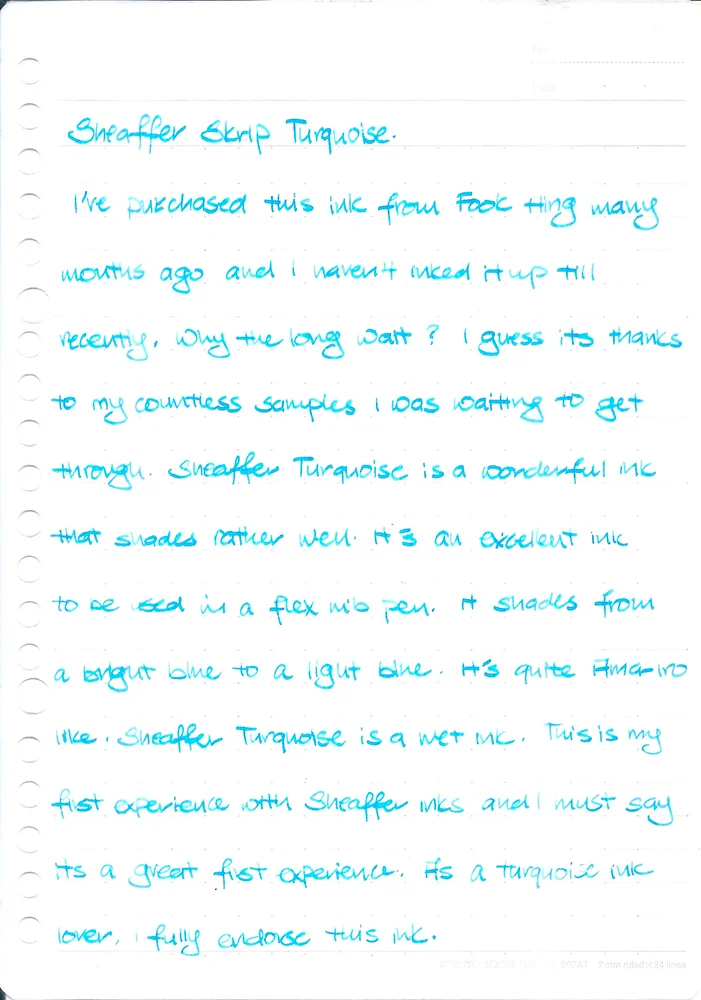 Sheaffer Skrip Turquoise.
I've purchased this ink from Fook Hing many
months ago and I haven't inked it up till
recently. Why the long wait? I guess its thanks
to my countless samples I was waiting to get
through. Sheaffer Turquoise is a wonderful ink
that shades rather well. It's an excellent ink
to be used in a flex nib pen. It shades from
a bright blue to a light blue. It's quite Ama-iro
like. Sheaffer Turquoise is a wet ink. This is my
first experience with Sheaffer inks and I must say
its a great first experience. As a turquoise ink
lover, I fully endorse this ink.
7 mm ruled x 24 lines